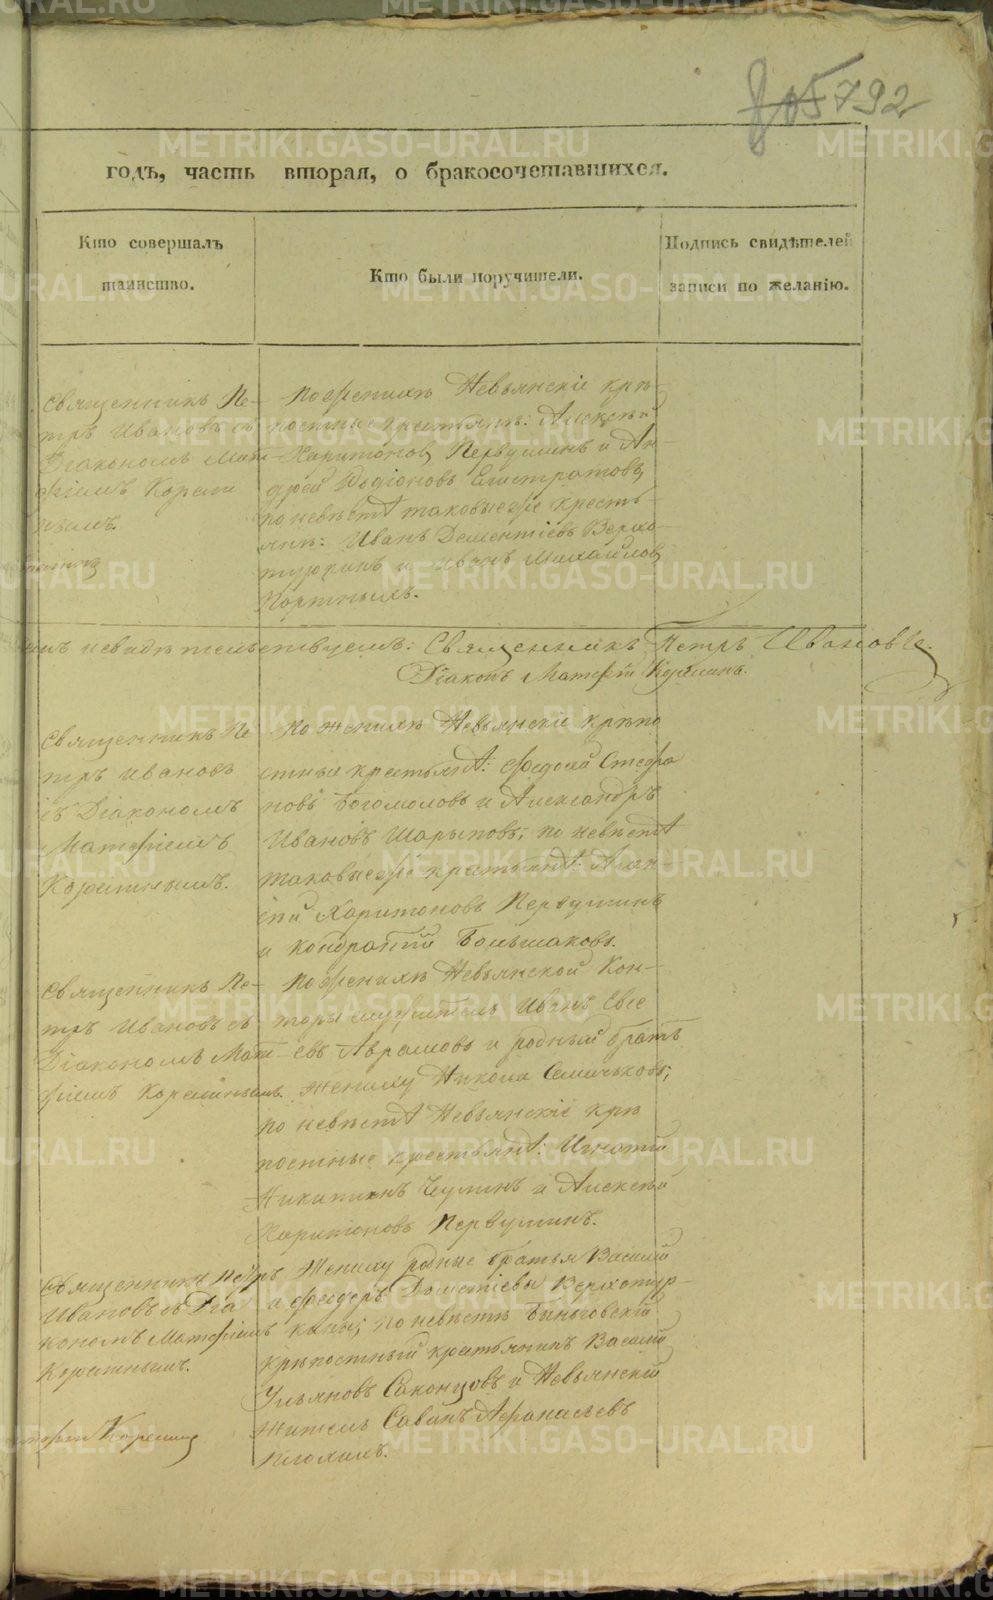 805 792
годъ, часть вторая, о бракосочетавшихся.
Кто совершалъ
таинство.
Кто были поручители.
Подпись свидѣтелей
записи по желанію.
Священникъ Пе-
тръ Ивановъ съ
Діакономъ Мат-
фіемъ
По женихѣ Невьянскіе крѣ-
постные крестьяне: Алексѣй
Харитоновъ Первушинъ и Ан-
дрей Родіоновъ Елистратовъ,
по невѣстѣ таковые же кресть-
яне: Иванъ Дементіевъ Верхо-
туркинъ и Иванъ Михайловъ
Портныхъ.
свидѣтельствуемъ: Священникъ Петръ Ивановъ
Діаконъ Матфій Корелинъ.
Священникъ Пе
тръ Ивановъ
съ Діакономъ
Матфіемъ
Корелинымъ.
По женихѣ Невьянскіе крѣпо
стные крестьянѣ: Ѳедотъ Стефа
новъ Богомоловъ и Александръ
Ивановъ Шарыповъ; по невѣстѣ
таковые же крестьянѣ: Алек-
сѣй Харитоновъ Первушинъ
и Кондратій Большаковъ.
Священникъ Пе-
тръ Ивановъ съ
Діакономъ Мат
фіемъ Корелинымъ.
По женихѣ Невьянской Кон-
торы служитель Иванъ Евсе
евъ Аврамовъ и родный братъ
жениху Никола
по невѣстѣ Невьянскіе крѣ
постные крестьянѣ: Игнатій
Никитинъ Чусминъ и Алексѣй
Харитоновъ Первушинъ.
Священникъ Петръ
Ивановъ съ Діа
кономъ Матфіемъ
Корелинымъ.
Жениху родные братья Василій
и Ѳеодоръ Дометіевы Верхотур-
кины; по невѣстѣ Быньговскій
крѣпостный крестьянинъ Василій
Ульяновъ и Невьянскій
житель Савинъ Афанасьевъ
Корелинъ